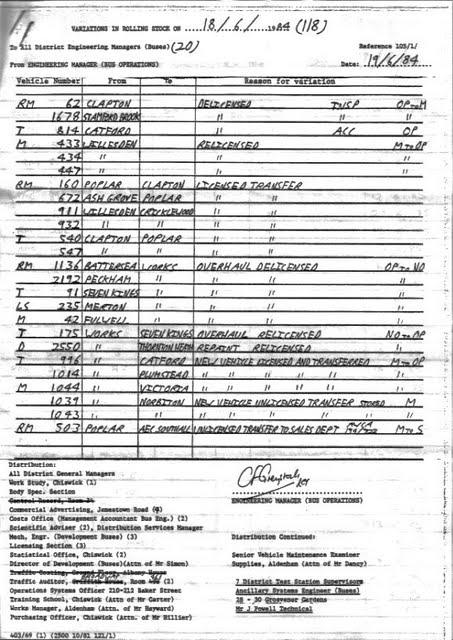 VARIATIONS IN ROLLING STOCK ON 18/6/1984 (118)
To All District Engineering Managers (Buses) (20) Reference 103/1/
From ENGINEERING MANAGER (BUS OPERATIONS) Date: 19/6/84
Vehicle Number From To Reason for variation
RM 62 CLAPTON DELICENSED INSP OP to M
1678 STAMFORD BROOK " " "
T 814 CATFORD " ACC OP
M 433 WILLESDEN RELICENSED M to OP
434 " " "
447 " " "
RM 160 POPLAR CLAPTON LICENSED TRANSFER
672 ASH GROVE POPLAR " "
911 WILLESDEN CRICKLEWOOD " "
932 " " " "
T 540 CLAPTON POPLAR " "
547 " " " "
RM 1136 BATTERSEA WORKS OVERHAUL DELICENSED OP to NO
2192 PECKHAM " " " "
T 91 SEVEN KINGS " " " "
LS 235 MERTON " " " "
M 42 FULWELL " " " "
T 175 WORKS SEVEN KINGS OVERHAUL RELICENSED NO to OP
D 2550 " THORNTON HEATH REPAINT RELICENSED "
T 996 " CATFORD NEW VEHICLE LICENSED AND TRANSFERRED M to OP
1014 " PLUMSTEAD " " " " " "
M 1044 " VICTORIA " " " " " "
1039 " NORBITON NEW VEHICLE UNLICENSED TRANSFER STORED M
1043 " " " " " " "
RM 503 POPLAR AEC SOUTHALL UNLICENSED TRANSFER TO SALES DEPT M to S
Distribution:
All District General Managers
Work Study, Chiswick (1)
Body Spec. Section
Control Record, Room 24
ENGINEERING MANAGER (BUS OPERATIONS)
Commercial Advertising, Jamestown Road
Costs Office (Management Accountant Bus Eng.) (2)
Scientific Adviser (2), Distribution Services Manager
Mech. Engr. (Development Buses) (3)
Licensing Section (3)
Distribution Continued:
Statistical Office, Chiswick (2)
Director of Development (Buses)(Attn of Mr Simon)
Traffic Costing, Ground Floor, Albany House
Traffic Auditor, Griffith House, Room (2)
Operations Systems Officer 210-212 Baker Street
Training School, Chiswick (Attn of Mr Carter)
Works Manager, Aldenham (Attn. of Mr Hayward)
Purchasing Officer, Chiswick (Attn. of Mr Hillier)
Senior Vehicle Maintenance Examiner
Supplies, Aldenham (Attn of Mr Dancy)
7 District Test Station Supervisors
Ancillary Systems Engineer (Buses)
28 - 30 Grosvenor Gardens
Mr J Powell Technical
403/69 (1) (2500 10/81 121/1)